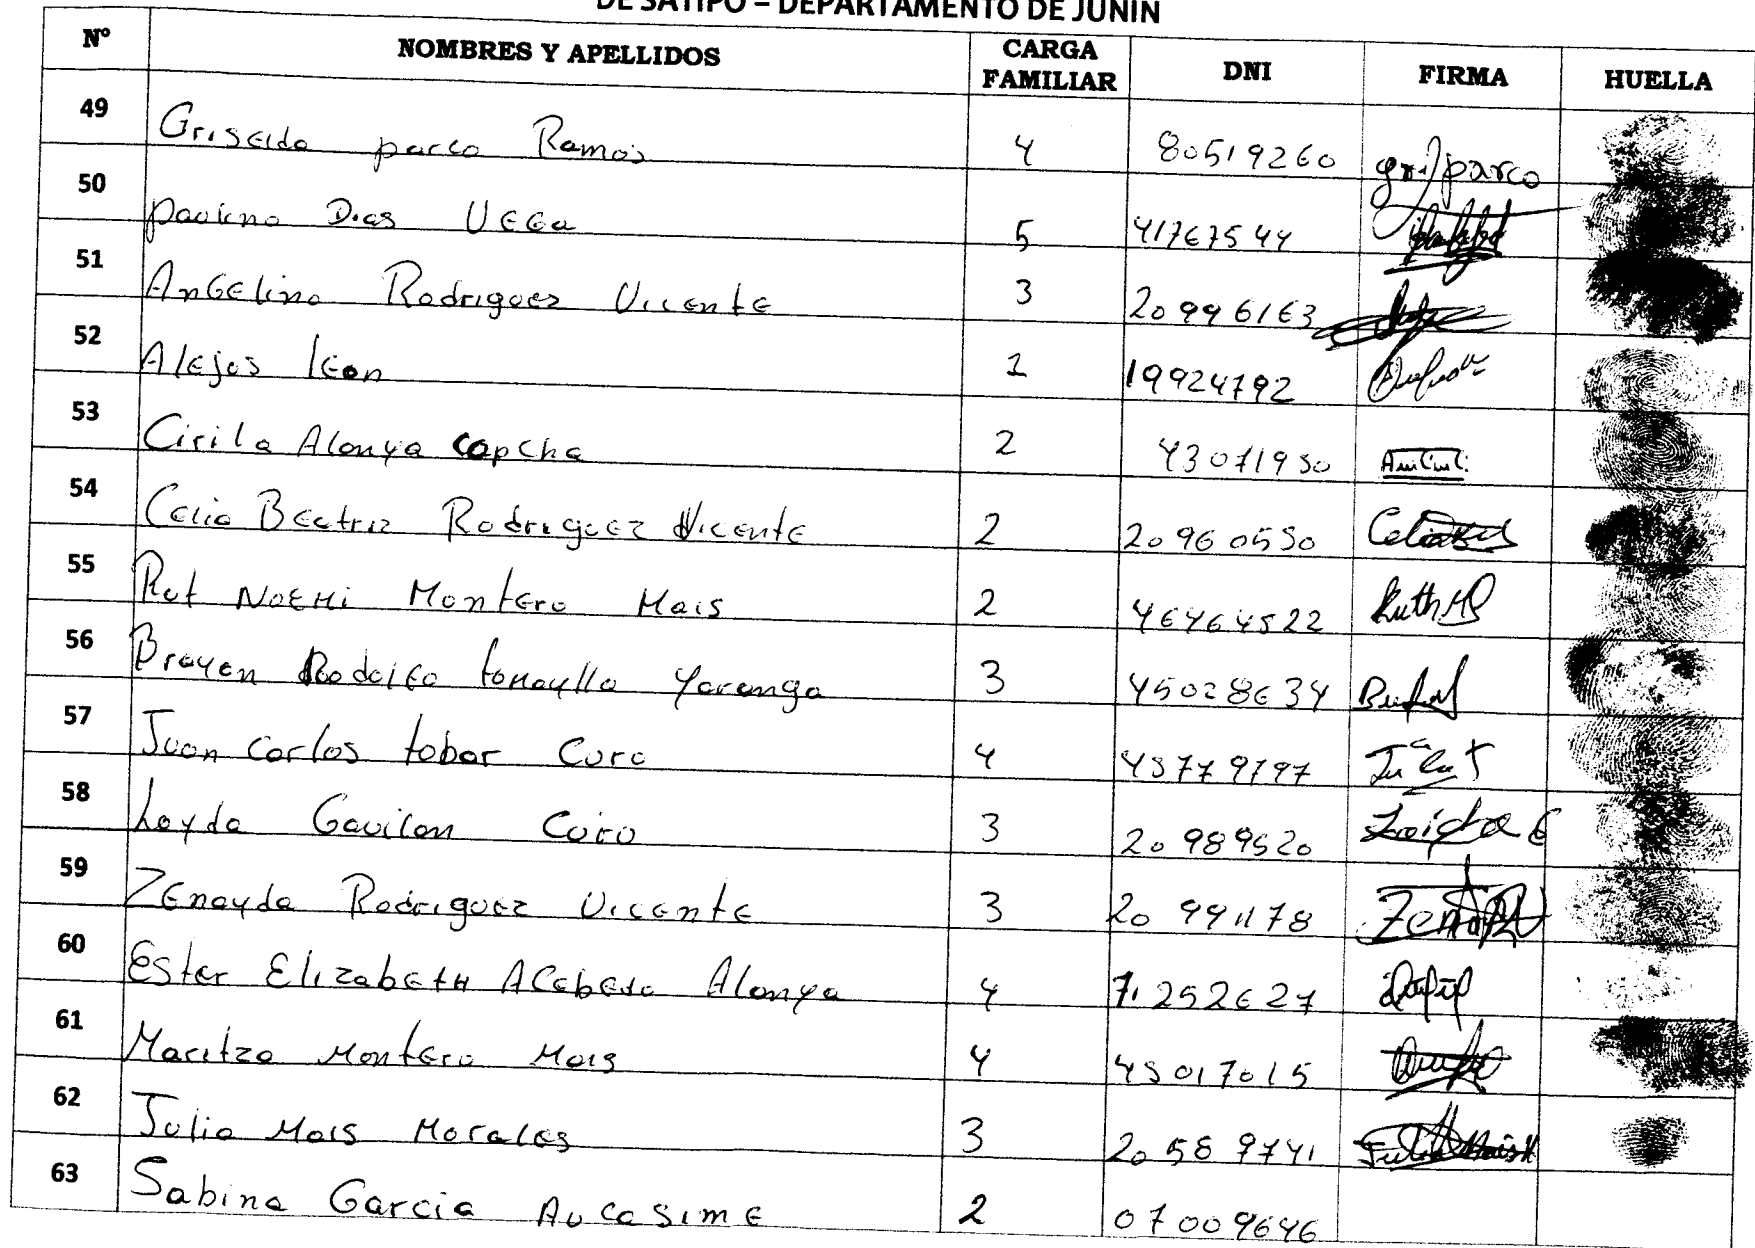 DE SATIPO – DEPARTAMENTO DE JUNIN
Nº NOMBRES Y APELLIDOS CARGA FAMILIAR DNI FIRMA HUELLA
49 Griselda parco Ramos 4 80519260 gris parco
50 paulino Dias VEGa 5 41767544
51 AnGElino Rodriguez VicEntE 3 20996163
52 AlEjos lEon 1 19924792
53 Cirila Alonya Capcha 2 43071950
54 Celia BEatriz RodriguEz VicentE 2 20960550
55 Rut NOEMi MontEro Mais 2 46464522 Ruth
56 Brayan Rodolfo tomaylla Yaranga 3 45028634
57 Juan Carlos tobar Curo 4 45779797
58 Layda Gavilan Curo 3 20989520
59 ZEnayda RodriguEz VicEntE 3 20991178
60 EstEr ElizabEtH ACEbEdo Alonya 4 71252627
61 Maritza MontEro Mais 4 45017015
62 Julia Mais MoralEs 3 20589741
63 Sabina Garcia AucasimE 2 07009646